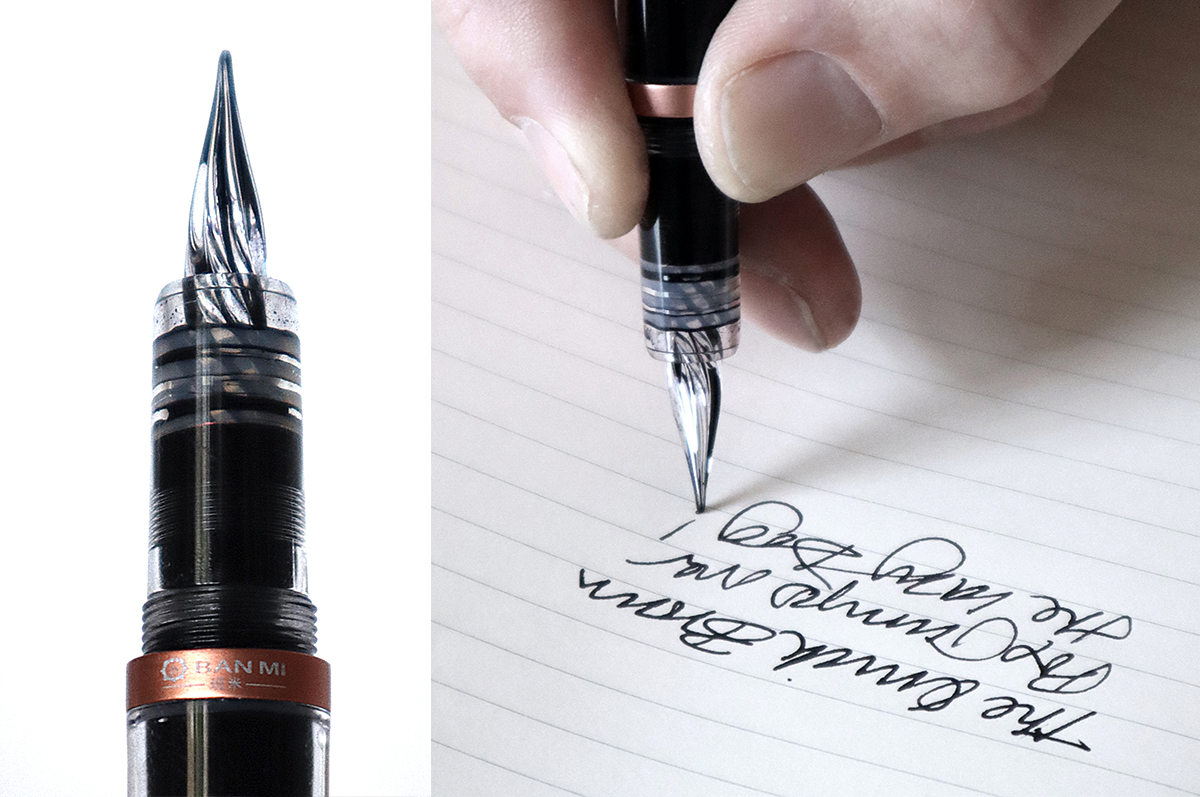 BANMI
The Quick Brown
Fox Jumps over
the lazy Dog